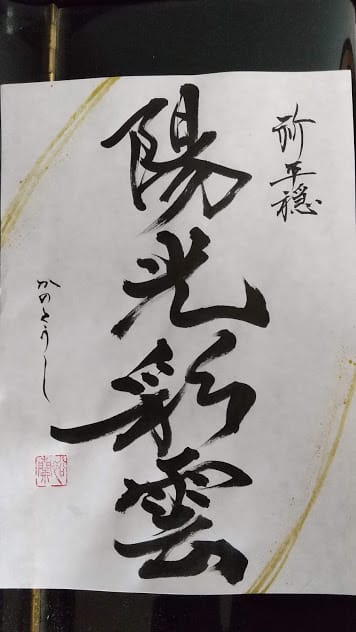 祈平穏
陽光彩雲
かのとうし